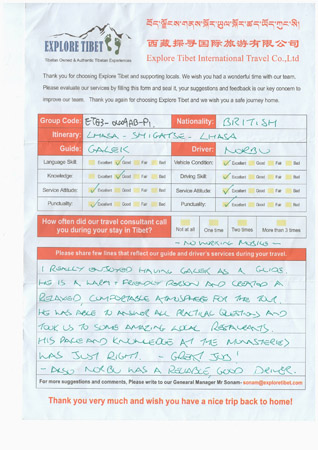 EXPLORE TIBET
Tibetan Owned & Authentic Tibetan Experiences
西藏探导国际旅游有限公司
Explore Tibet International Travel Co.,Ltd
Thank you for choosing Explore Tibet and supporting locals. We wish you had a wonderful time with our team.
Please evaluate our services by filling this form and seal it, your suggestions and feedback is our key concern to
improve our team. Thank you again for choosing Explore Tibet and we wish you a safe journey home.
Group Code: Nationality: BRITISH
Itinerary: LHASA - SHIGATSE - LHASA
Guide: GALEK Driver: NORBU
Language Skill: Excellent Good Fair Bad Vehicle Condition: Excellent Good Fair Bad
Knowledge: Excellent Good Fair Bad Driving Skill: Excellent Good Fair Bad
Service Attitude: Excellent Good Fair Bad Service Attitude: Excellent Good Fair Bad
Punctuality: Excellent Good Fair Bad Punctuality: Excellent Good Fair Bad
How often did our travel consultant call
you during your stay in Tibet? Not at all One time Two times More than 3 times
- NO WORKING MOBILE -
Please share few lines that reflect our guide and driver's services during your travel.
I REALLY ENJOYED HAVING GALEK AS A GUIDE.
HE IS A WARM + FRIENDLY PERSON AND CREATED A
RELAXED, COMFORTABLE ATMOSPHERE FOR THE TOUR.
HE WAS ABLE TO ANSWER ALL PRACTICAL QUESTIONS AND
TOOK US TO SOME AMAZING LOCAL RESTAURANTS.
HIS PACE AND KNOWLEDGE AT THE MONASTERIES
WAS JUST RIGHT. - GREAT JOB!
- ALSO NORBU WAS A RELIABLE, GOOD DRIVER.
For more suggestions and comments, Please write to our Genearal Manager Mr Sonam- sonam@exploretibet.com
Thank you very much and wish you have a nice trip back to home!